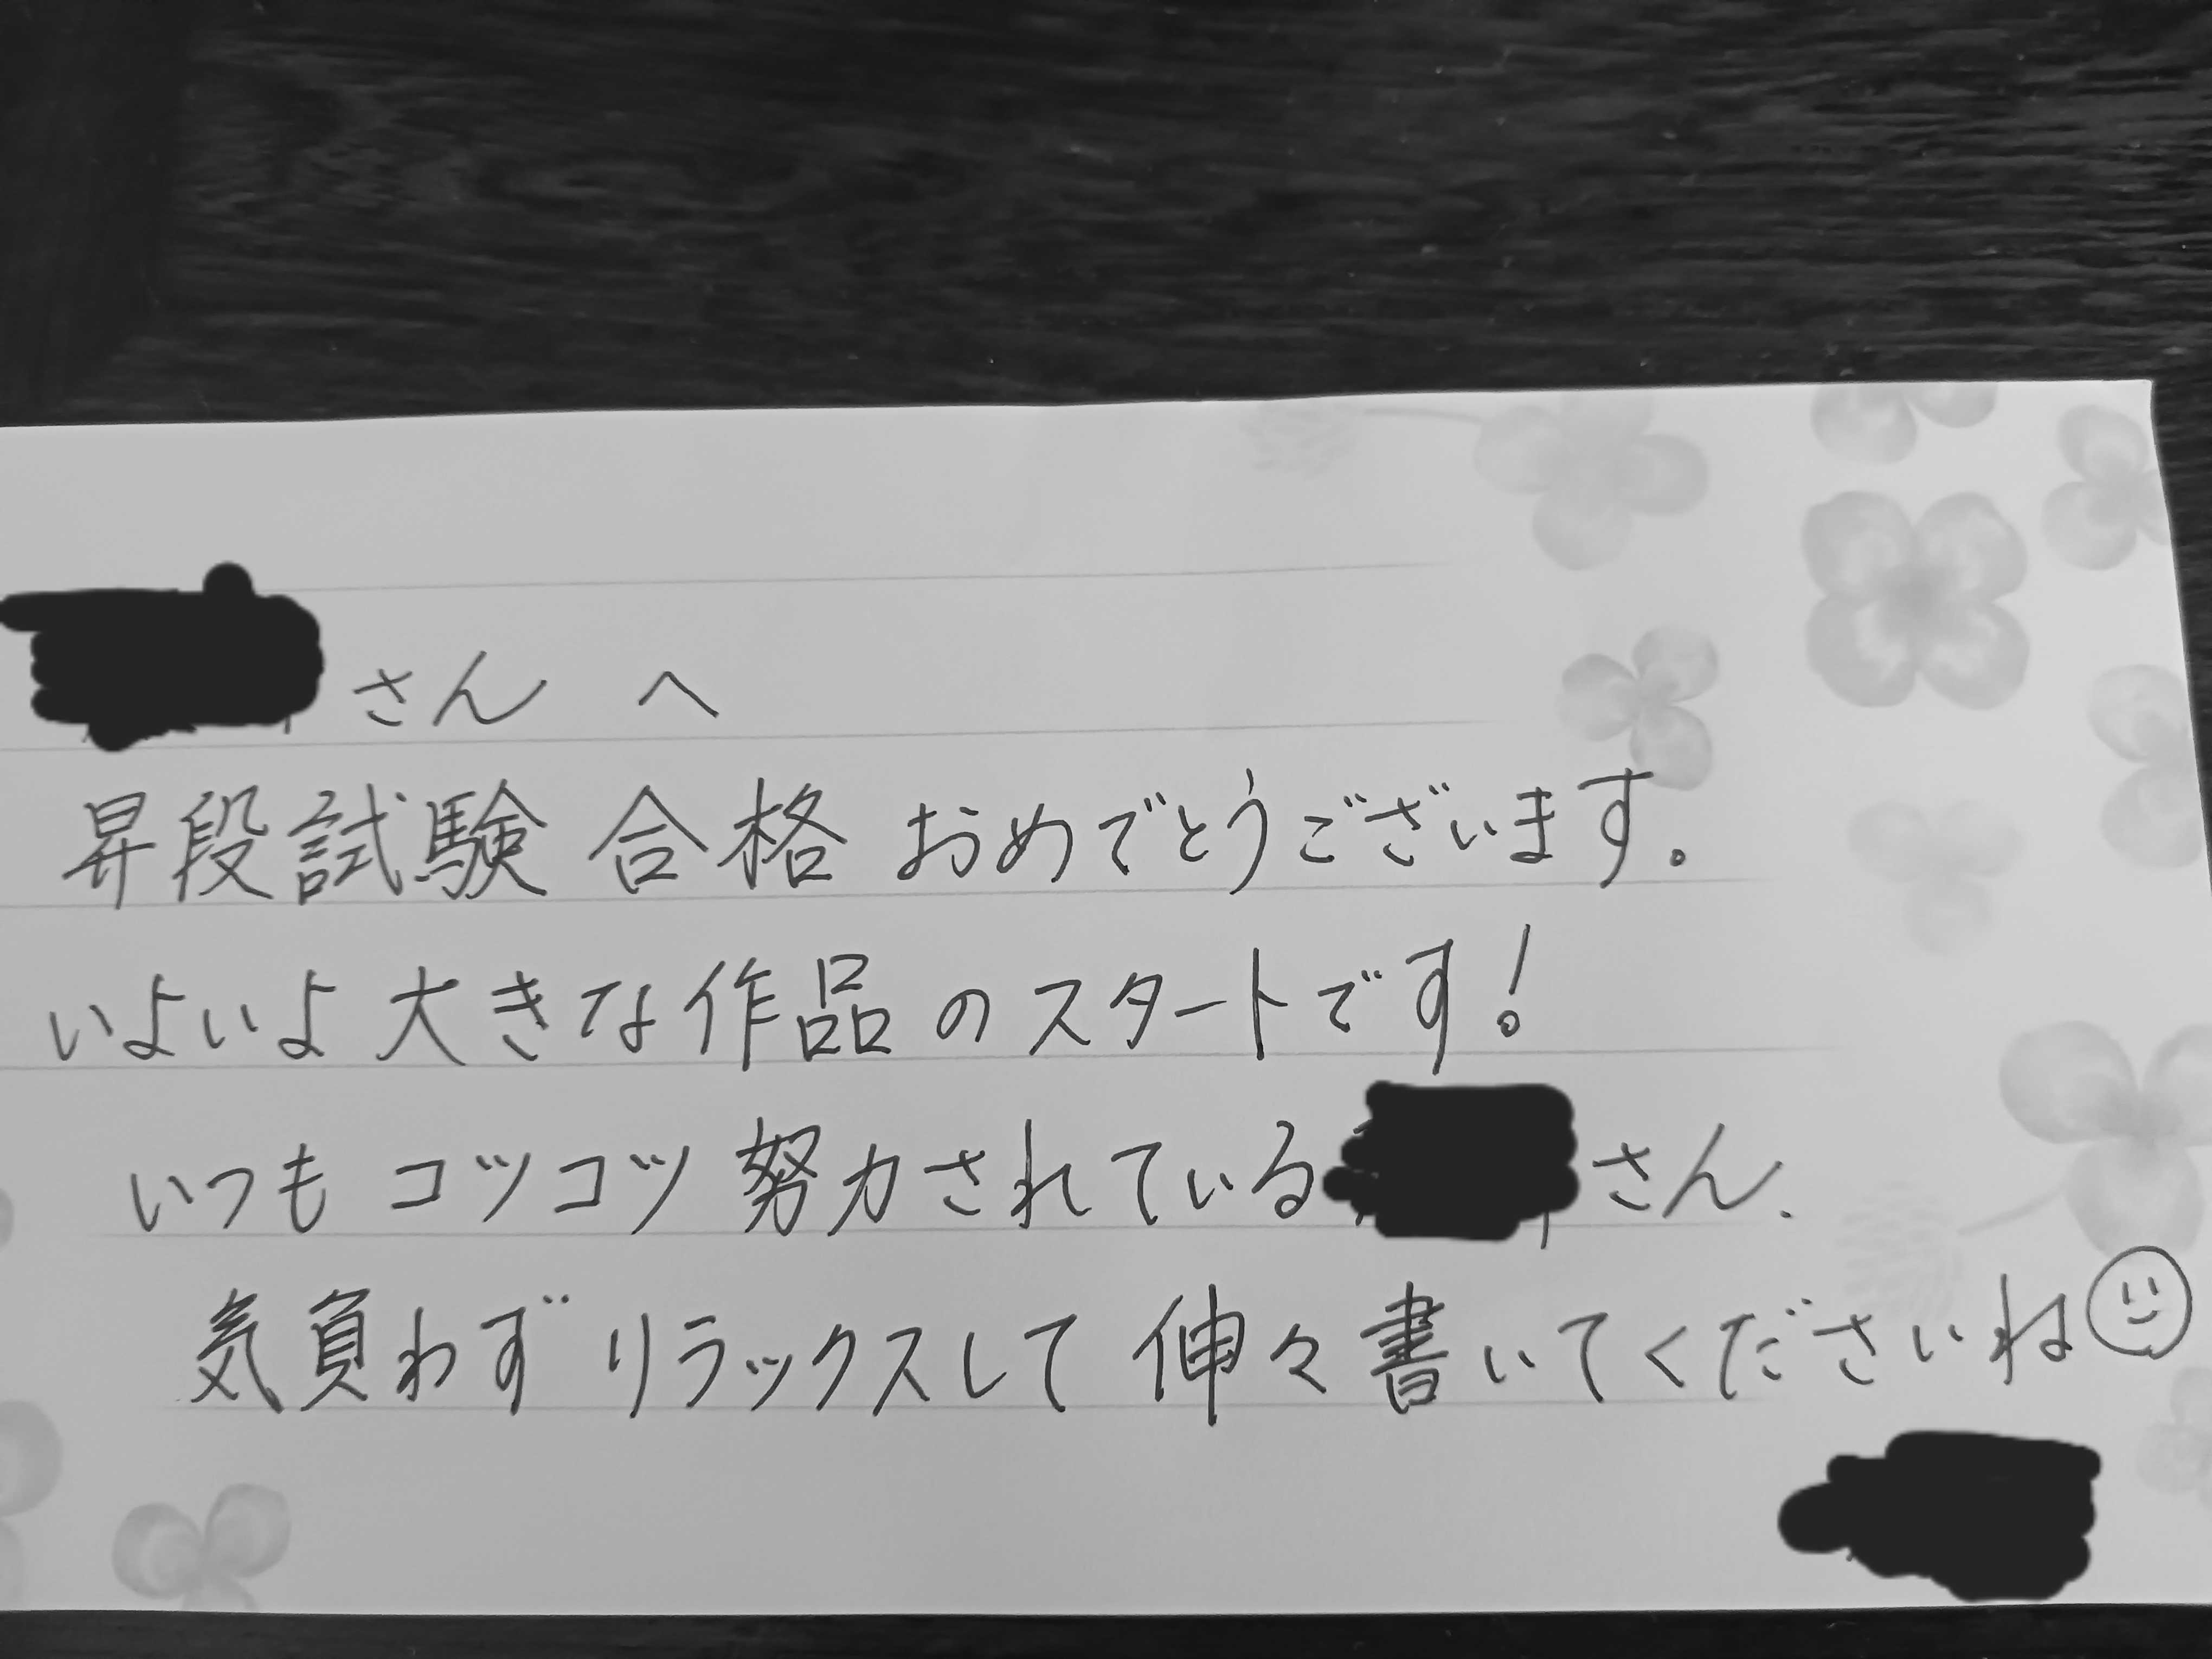 さんへ
昇段試験 合格 おめでとうございます。
いよいよ 大きな作品のスタートです!
いつも コツコツ 努力されている さん、
気負わず リラックスして 伸々書いてくださいね